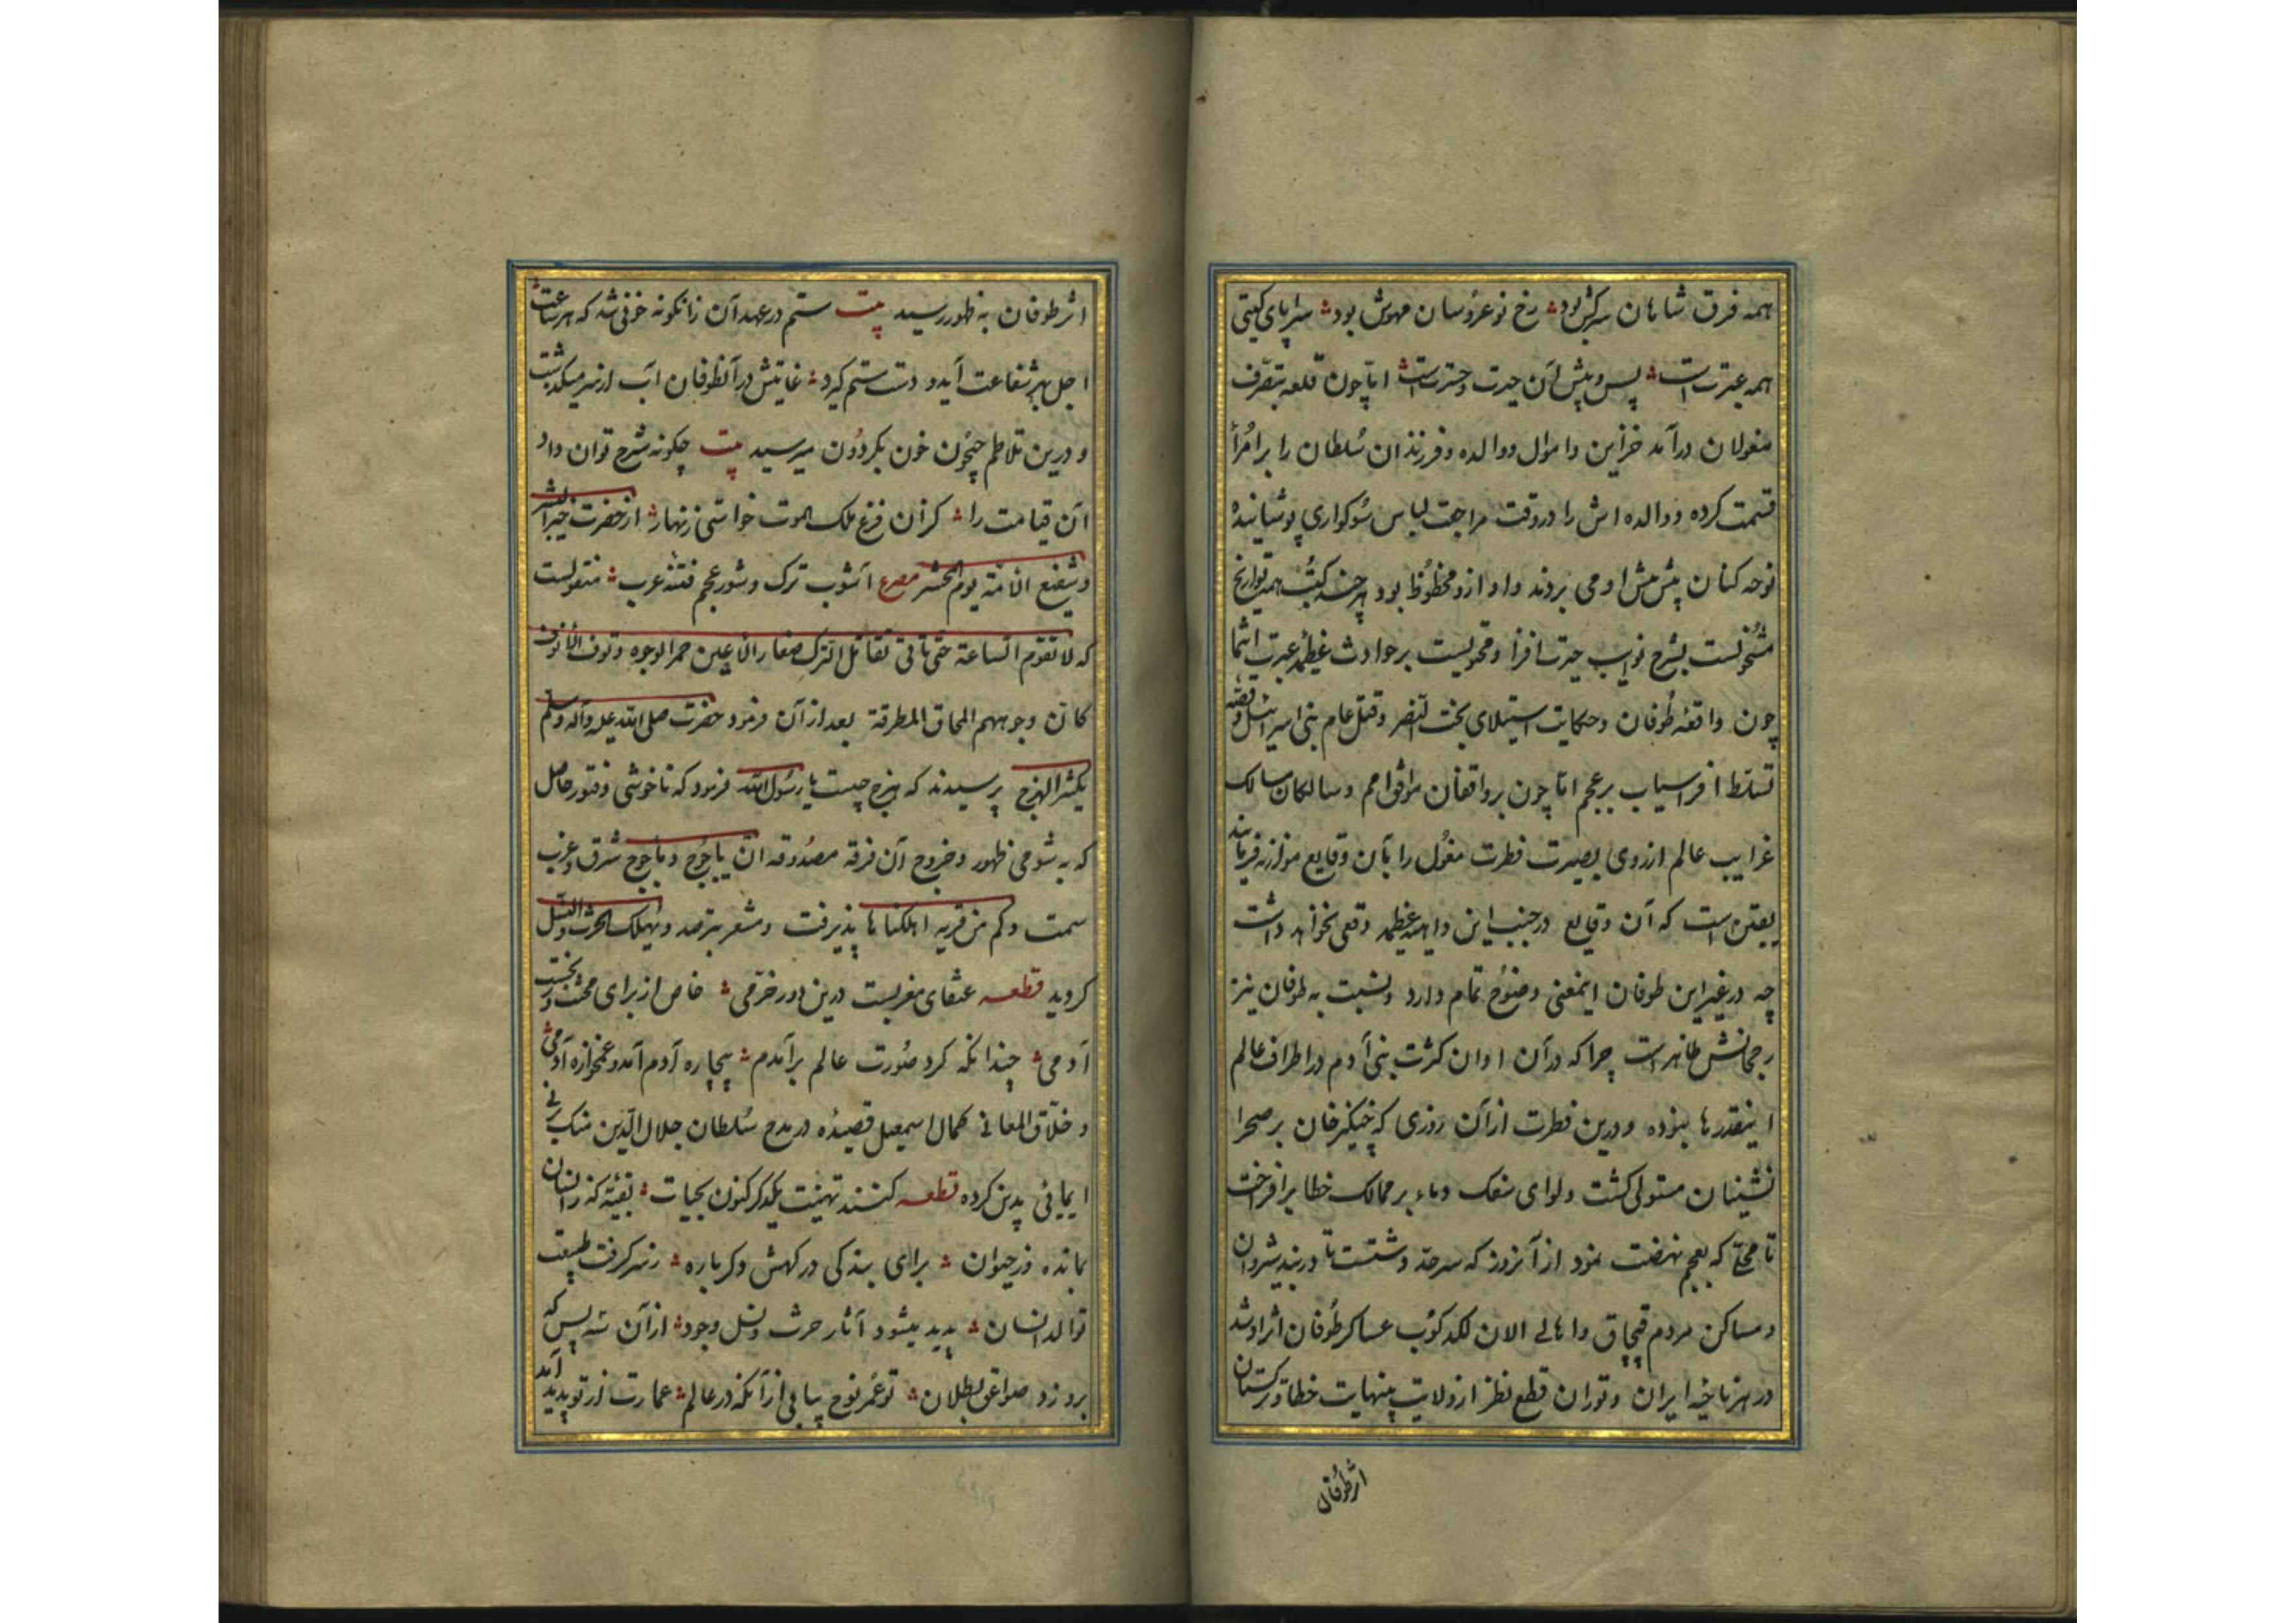 همه فرق شاهان سرکش بود ؞ رخ نوعروسان مهوش بود ؞ سراپای کیتی
همه عبرت است ؞ پس و پیش آن حیرت و حسرت است ؞ امّا چون قلعه بتصرّف
مغولان درآمد خزاین و اموال و والده و فرزندان سُلطان را بر اُمرأ
قسمت کرده و والده اش را در وقت مراجعت لباس سُوکواری پوشانیده
نوحه کنان پیش پیش او می بردند و او ازو محظُوظ بود هر چند کتُب همه تواریخ
مشُحونست بشرح نوایب حیرت افزا و محتویست بر حوادث عظیمه عبرت انتما
چون واقعهٔ طُوفان و حکایت استیلای بخت النّصر و قتل عام بنی اسرائیل و قصّه
تسلّط افراسیاب بر عجم امّا چون بر واقفان مواقف امم و سالکان مسالک
غرایب عالم از روی بصیرت فطرت مغُول را بآن وقایع موازنه فرمایند
یقین است که آن وقایع در جنب این داهیه عظیمه وقعی نخواهد داشت
چه در غیر این طوفان اینمعنی وضُوح تمام دارد و نسبت به طوفان نیز
رجحانش ظاهر است چرا که در آن اوان کثرت بنی آدم در اطراف عالم
اینقدرها نبوده و درین فطرت از آن روزی که چنکیز خان بر صحرا
نشینان مستولی کشت و لوای سفک دماء بر ممالک خطا برافراخت
تا محلّی که بعجم نهضت نمود از آنروز که سرحدّ دشت تا دربند شیروان
و مساکن مردم قپچاق و اهالی الان لکد کوُب عساکر طُوفان اثر او شد
در هر ناحیه ایران و توران قطع نظر از ولایت بینهایت خطا و ترکستان
اثر طُوفان
اثر طوفان به ظهور رسید بیت ستم در عهد آن زانکونه خونی شد که هر ساعت
اجل بهر شفاعت آید و دست ستم کیرد ؞ غایتش در آنطوفان آب از سر میکذشت
و درین تلاطم جیحُون خون بکردُون میرسید بیت چکونه شرح توان داد
آن قیامت را ؞ کز آن فزع ملک الموت خواستی زنهار ؞ از حضرت خیر البشر
و شفیع الامّة یوم المحشر مصرع آشوب ترک و شور عجم فتنه عرب ؞ منقولست
که لا تقوم السّاعة حتی تقاتل الترک صغار الاعین حمر الوجوه
کانّ وجوههم المجان المطرقة بعد از آن فرمود حضرت صلی الله علیه و آله و سلم
یکثر الهرج پرسیدند که هرج چیست یا رسُول الله فرمود که ناخوشی و فتور حاصل
که به شومی ظهور و خروج آن فرقه مصدُوقه انّ یاجُوج و ماجوج شرق و غرب
سمت و کم من قریه اهلکناها پذیرفت و یهلک الحرث و النّسل
کردید قطعه عنقای مغربست درین دور خرّمی ؞ خاص از برای محنت و
آدمی ؞ چندانکه کرد صُورت عالم برآمدم ؞ بیچاره آدم آمد و غمخواره آدمی ؞
و خلّاق المعانی کمال اسمعیل قصیدُه در مدح سُلطان جلال الدّین منک برنی
ایمائی بدین کرده قطعه کنند تهنیت یکدکر کنون بحیات ؞ بقیّه که ز انسان
بمانده و ز حیوان ؞ برای بندکی درکهش دکر باره ؞ ز سر کرفت طبیعت
توالد انسان ؞ پدید میشود آثار حرث و نسل وجود ؞ از آن سپس که
توعمر نوح بیابی از آنکه در عالم ؞ عمارت از تو پدید آمد